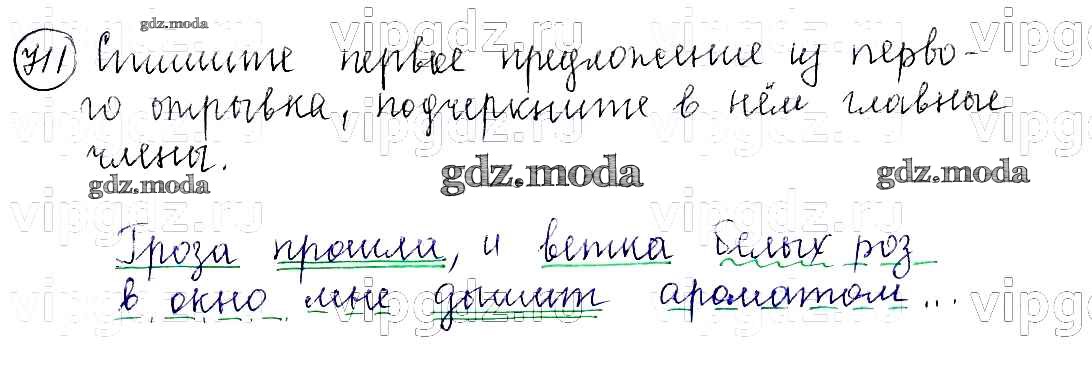 gdz.moda
711 Спишите первое предложение из перво-
го отрывка, подчеркните в нём главные
члены.
gdz.moda gdz.moda gdz.moda
vipgdz.ru vipgdz.ru
Гроза прошла, и ветка белых роз
в окно мне дышит ароматом...